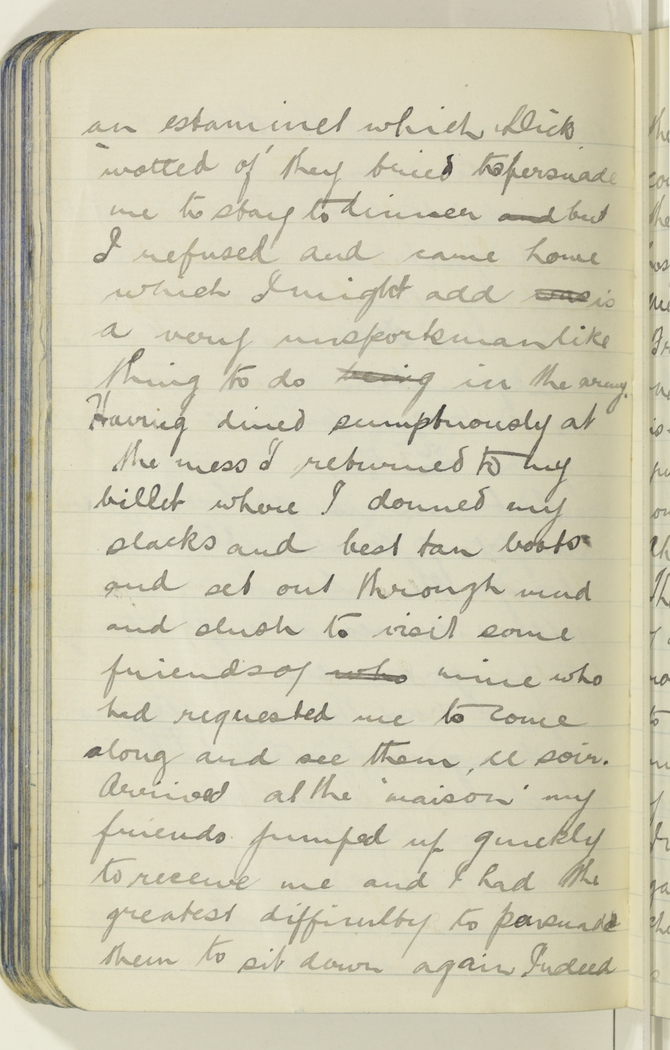 an estaminet which Dick
'wotted of' they tried to persuade
me to stay to dinner and but
I refused and came home
which I might add was is
a very unsportsmanlike
thing to do being in the army.
Having dined sumptuously at
the mess I returned to my
billet where I donned my
slacks and best tan boots
and set out through mud
and slush to visit some
friends of who mine who
had requested me to come
along and see them, ce soir.
Arrived at the 'maison' my
friends jumped up quickly
to receive me and I had the
greatest difficulty to persuade
them to sit down again Indeed